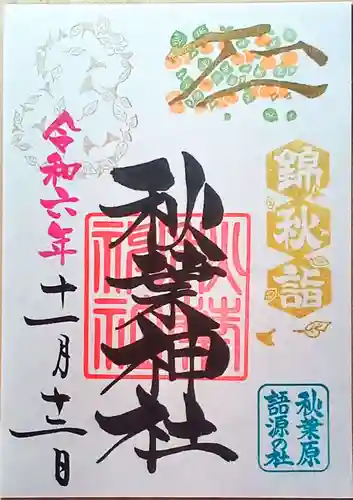 錦秋詣
秋葉神社
秋葉神社
令和六年
十一月十二日
秋葉原
語源の社